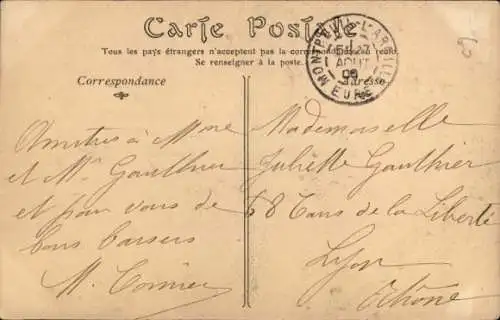 Carte Postale
Tous les pays étrangers n'acceptent pas la correspondance au recto.
Se renseigner à la poste.
Correspondance
Adresse
AOUT
EURE
Amitiés à Mme
et Mr Gauthier
et pour vous de
bons baisers
Mademoiselle
Juliette Gauthier
68 Cours de la Liberté
Lyon
Rhône